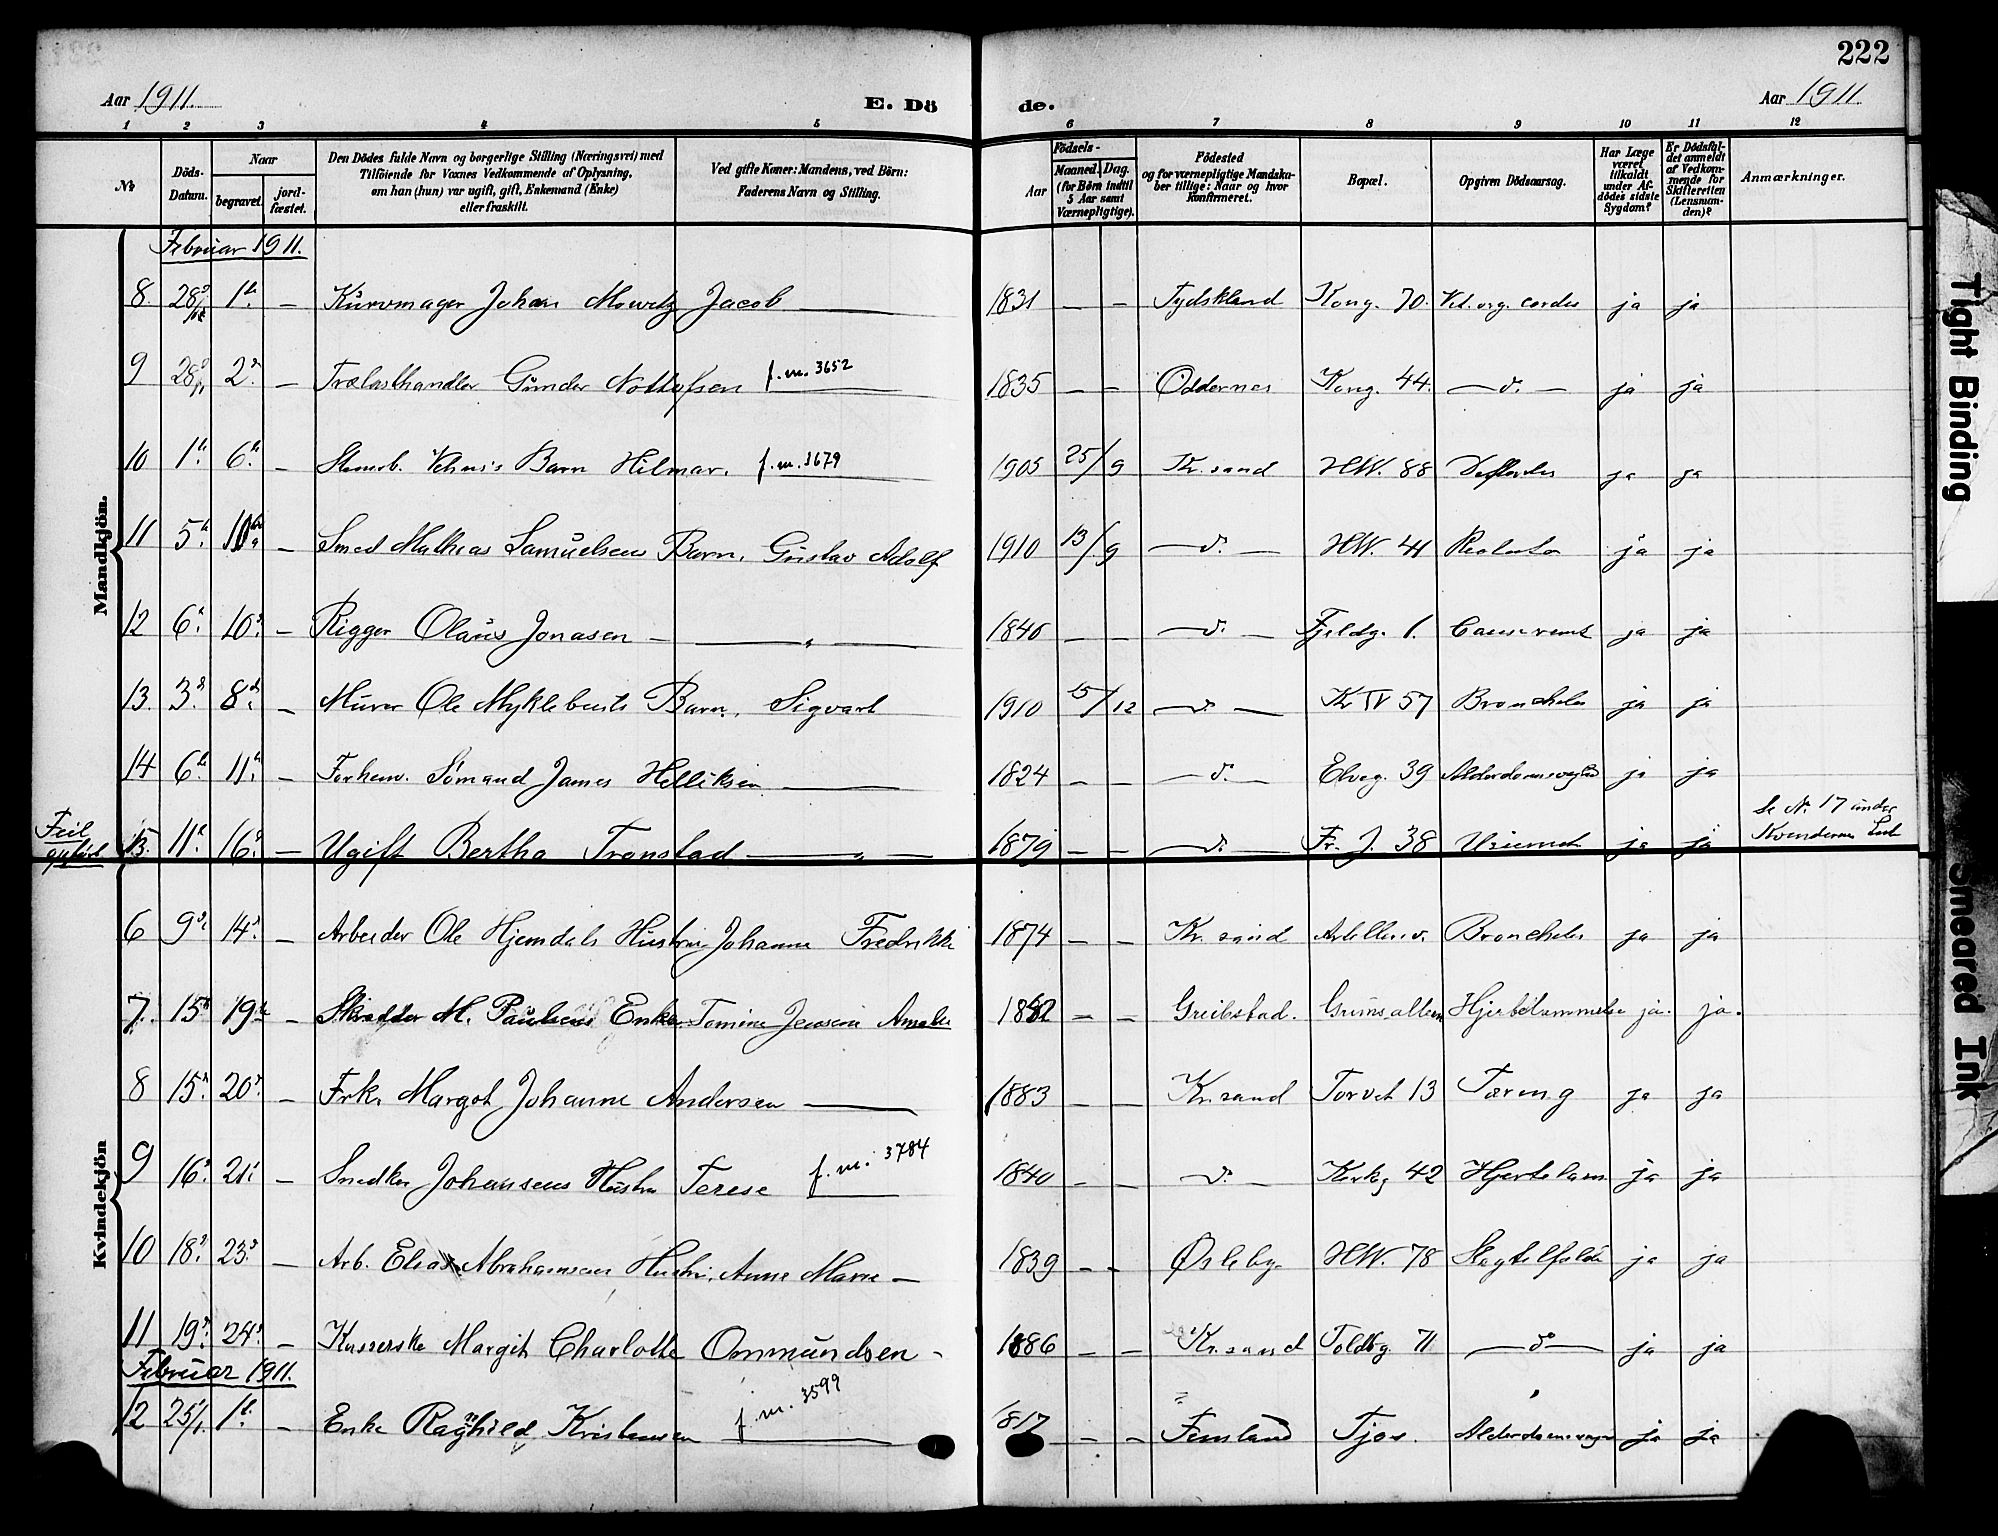 222
Aar 1911.
E. Dö de.
Aar 1911
1 2 3 4 5 6 7 8 9 10 11 12
№
Döds-Datum.
Naar
begravet.
jord-fæstet.
Den Dödes fulde Navn og borgerlige Stilling (Næringsvei) med
Tilföiende for Voxnes Vedkommende af Oplysning,
om han (hun) var ugift, gift, Enkemand (Enke)
eller fraskilt.
Ved gifte Koner: Mandens, ved Börn:
Faderens Navn og Stilling.
Födsels-
Aar
Maaned. Dag.
(for Börn indtil
5 Aar samt
Værnepligtige).
Födested
og for værnepligtige Mandska-
ber tillige: Naar og hvor
Konfirmeret.
Bopæl.
Opgiven Dödsaarsag.
Har Læge
været
tilkaldt
under Af-
dödes sidste
Sygdom?
Er Dödsfal-
det anmeldt
af Vedkom-
mende for
Skifteretten
(Lensman-
den)?
Anmærkninger.
Mandkjön.
Februar 1911.
8. 28 1 — Kurvmager Johan Jacob — 1831 — — Tydskland Kong. 70. Vit. org. cordis ja ja
9 28 2 — Trælasthandler Gunder Nottofsen f.m. 3652 1835 — — Oddernes Kong. 44. — d. — ja ja
10 1 6 — Barn Hilmar. f.m. 3679 1905 25/9 Kr.sand HW. 88 ja ja
11 5 10 — Smed Mathias Samuelsens Barn, Gustav Adolf 1910 13/9 — d. — HW. 41 ja ja
12 6 10 — Rigger Olaus Jonasen — 1840 — — — d. — Fjeldg. 1. ja ja
13. 3 8 — Murer Ole Myklebusts Barn, Sigvart 1910 15/12 — d. — Kr IV 57 ja ja
14 6 11 — Forhenv. Sømand James Helliksen — 1824 — — — d. — Elveg. 39 ja ja
Feil
opført 15. 11 16 — Ugift Bertha Tronstad — 1879 — — — d. — Fr. J. 38 ja ja Se № 17 under
Kvindernes
Kvindekjön
6 9 14 — Arbeider Ole Hjemdals Hustru Johanne Fredrikke 1874 — — Kr.sand ja ja
7. 15 19 — Skrædder M. Paulsens Enke Tomine Jensine Amalie 18 — — Greibstad. ja. ja.
8 15 20 — Frk. Margot Johanne Andersen — 1883 — — Kr.sand Torvet 13 Tæring ja ja
9 16 21 — Snedker Johansens Hustru Terese f.m. 3784 1840 — — d. Kirkeg 42 ja ja
10 18 23 — Arb. Elias Abrahamsens Hustru, Anne Marie — 1839 — — Øsleby HW. 78 ja ja
11 19 24 — Kasserske Margit Charlotte Ommundsen — 1886 — — Kr.sand Toldbg. 71 — d — ja ja
Februar 1911.
12 25/1 1 — Enke Ragnhild Kristensen f.m. 3599 1817 — — Finsland Tjos. ja ja
Tight Binding
Smeared Ink